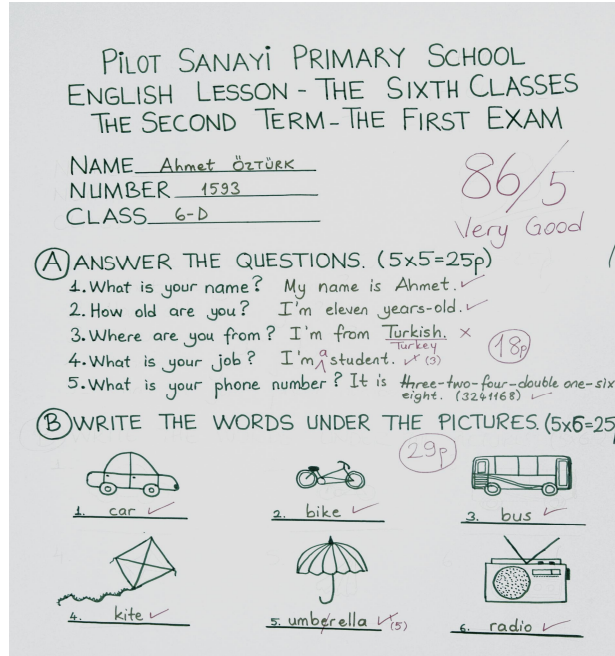 PİLOT SANAYİ PRIMARY SCHOOL
ENGLISH LESSON - THE SIXTH CLASSES
THE SECOND TERM - THE FIRST EXAM
NAME Ahmet ÖZTÜRK
NUMBER 1593
CLASS 6-D
86/5
Very Good
A ANSWER THE QUESTIONS. (5x5=25p)
1. What is your name? My name is Ahmet.
2. How old are you? I'm eleven years-old.
3. Where are you from? I'm from Turkish. x
Turkey
18p
4. What is your job? I'm a student. (3)
5. What is your phone number? It is three-two-four-double one-six
eight. (3241168)
B WRITE THE WORDS UNDER THE PICTURES. (5x6=25
29p
1. car
2. bike
3. bus
4. kite
5. umberella (5)
6. radio